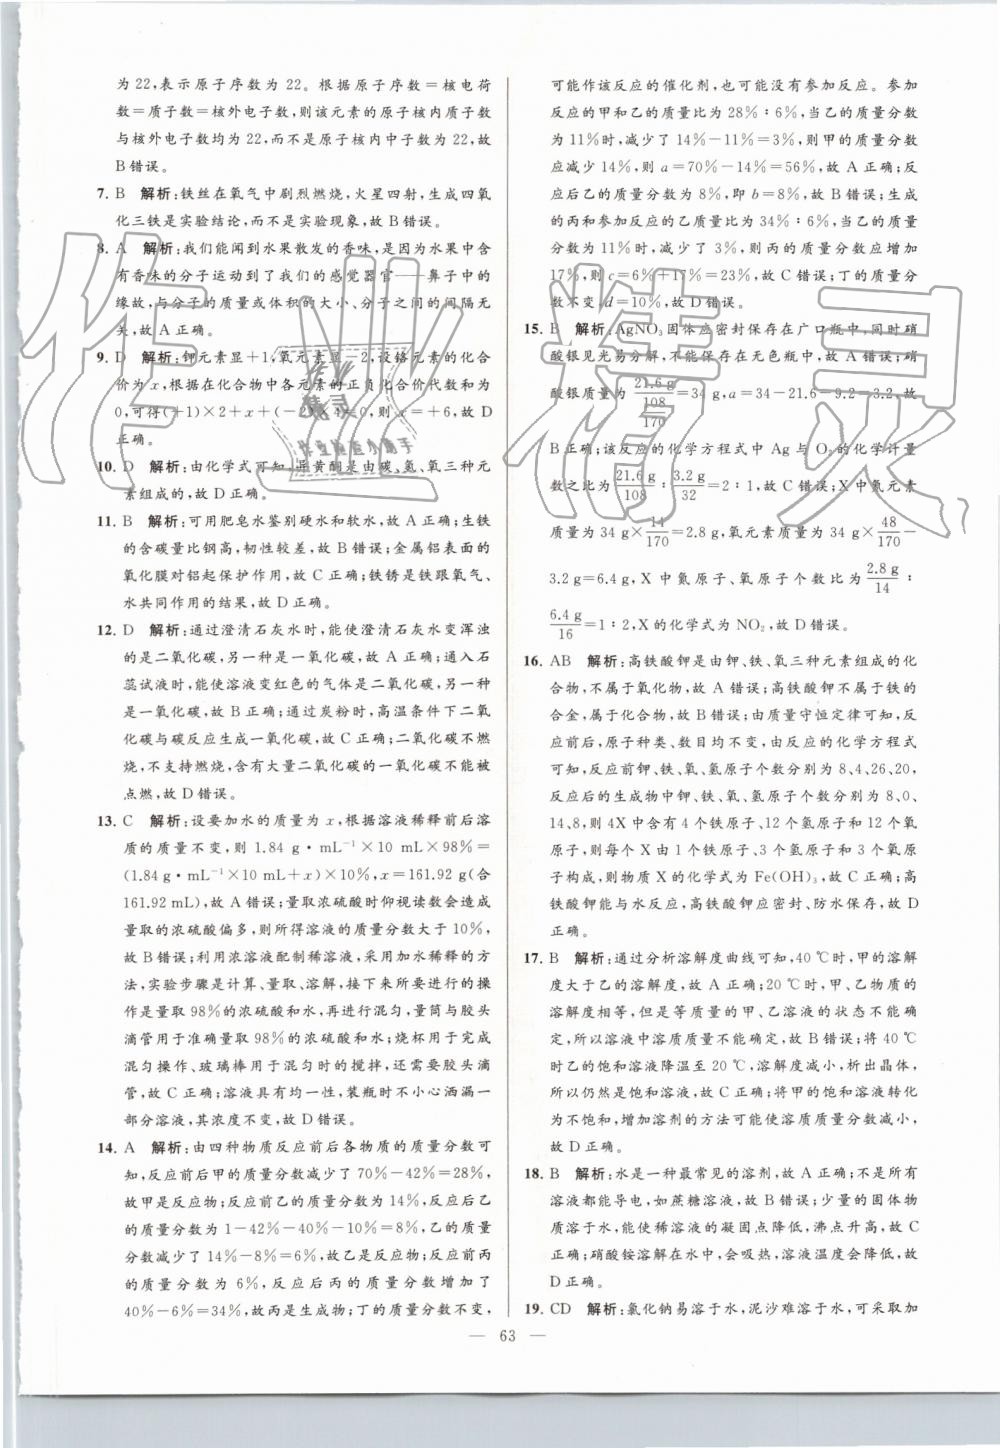 为 22,表示原子序数为 22。根据原子序数=核电荷
数=质子数=核外电子数,则该元素的原子核内质子数
与核外电子数均为 22,而不是原子核内中子数为 22,故
B 错误。
7. B 解析:铁丝在氧气中剧烈燃烧,火星四射,生成四氧
化三铁是实验结论,而不是实验现象,故 B 错误。
8. A 解析:我们能闻到水果散发的香味,是因为水果中含
有香味的分子运动到了我们的感觉器官——鼻子中的
缘故,与分子的质量或体积的大小、分子之间的间隔无
关,故 A 正确。
9. D 解析:钾元素显+1,氧元素显-2,设铬元素的化合
价为 x,根据在化合物中各元素的正负化合价代数和为
0,可得(+1)×2+x+(-2)×4=0,则 x=+6,故 D
正确。
10. D 解析:由化学式可知,异黄酮是由碳、氢、氧三种元
素组成的,故 D 正确。
11. B 解析:可用肥皂水鉴别硬水和软水,故 A 正确;生铁
的含碳量比钢高,韧性较差,故 B 错误;金属铝表面的
氧化膜对铝起保护作用,故 C 正确;铁锈是铁跟氧气、
水共同作用的结果,故 D 正确。
12. D 解析:通过澄清石灰水时,能使澄清石灰水变浑浊
的是二氧化碳,另一种是一氧化碳,故 A 正确;通入石
蕊试液时,能使溶液变红色的气体是二氧化碳,另一种
是一氧化碳,故 B 正确;通过炭粉时,高温条件下二氧
化碳与碳反应生成一氧化碳,故 C 正确;二氧化碳不燃
烧,不支持燃烧,含有大量二氧化碳的一氧化碳不能被
点燃,故 D 错误。
13. C 解析:设要加水的质量为 x,根据溶液稀释前后溶
质的质量不变,则 1.84 g·mL⁻¹×10 mL×98%=
(1.84 g·mL⁻¹×10 mL+x)×10%,x=161.92 g(合
161.92 mL),故 A 错误;量取浓硫酸时仰视读数会造成
量取的浓硫酸偏多,则所得溶液的质量分数大于 10%,
故 B 错误;利用浓溶液配制稀溶液,采用加水稀释的方
法,实验步骤是计算、量取、溶解,接下来所要进行的操
作是量取 98%的浓硫酸和水,再进行混匀,量筒与胶头
滴管用于准确量取 98%的浓硫酸和水;烧杯用于完成
混匀操作、玻璃棒用于混匀时的搅拌,还需要胶头滴
管,故 C 正确;溶液具有均一性,装瓶时不小心洒漏一
部分溶液,其浓度不变,故 D 错误。
14. A 解析:由四种物质反应前后各物质的质量分数可
知,反应前后甲的质量分数减少了 70%-42%=28%,
故甲是反应物;反应前乙的质量分数为 14%,反应后乙
的质量分数为 1-42%-40%-10%=8%,乙的质量
分数减少了 14%-8%=6%,故乙是反应物;反应前丙
的质量分数为 6%,反应后丙的质量分数增加了
40%-6%=34%,故丙是生成物;丁的质量分数不变,
可能作该反应的催化剂,也可能没有参加反应。参加
反应的甲和乙的质量比为 28%∶6%,当乙的质量分数
为 11%时,减少了 14%-11%=3%,则甲的质量分数
应减少 14%,则 a=70%-14%=56%,故 A 正确;反
应后乙的质量分数为 8%,即 b=8%,故 B 错误;生成
的丙和参加反应的乙质量比为 34%∶6%,当乙的质量
分数为 11%时,减少了 3%,则丙的质量分数应增加
17%,则 c=6%+17%=23%,故 C 错误;丁的质量分
数不变,d=10%,故 D 错误。
15. B 解析:AgNO₃ 固体应密封保存在广口瓶中,同时硝
酸银见光易分解,不能保存在无色瓶中,故 A 错误;硝
酸银质量为 (21.6 g)/(108/170)=34 g,a=34-21.6-9.2=3.2,故
B 正确;该反应的化学方程式中 Ag 与 O₂ 的化学计量
数之比为 21.6 g/108∶3.2 g/32=2∶1,故 C 错误;X 中氮元素
质量为 34 g×14/170=2.8 g,氧元素质量为 34 g×48/170-
3.2 g=6.4 g,X 中氮原子、氧原子个数比为 2.8 g/14∶
6.4 g/16=1∶2,X 的化学式为 NO₂,故 D 错误。
16. AB 解析:高铁酸钾是由钾、铁、氧三种元素组成的化
合物,不属于氧化物,故 A 错误;高铁酸钾不属于铁的
合金,属于化合物,故 B 错误;由质量守恒定律可知,反
应前后,原子种类、数目均不变,由反应的化学方程式
可知,反应前钾、铁、氧、氢原子个数分别为 8、4、26、20,
反应后的生成物中钾、铁、氧、氢原子个数分别为 8、0、
14、8,则 4X 中含有 4 个铁原子、12 个氢原子和 12 个氧
原子,则每个 X 由 1 个铁原子、3 个氢原子和 3 个氧原
子构成,则物质 X 的化学式为 Fe(OH)₃,故 C 正确;高
铁酸钾能与水反应,高铁酸钾应密封、防水保存,故 D
正确。
17. B 解析:通过分析溶解度曲线可知,40 ℃时,甲的溶解
度大于乙的溶解度,故 A 正确;20 ℃时,甲、乙物质的
溶解度相等,但是等质量的甲、乙溶液的状态不能确
定,所以溶液中溶质质量不能确定,故 B 错误;将 40 ℃
时乙的饱和溶液降温至 20 ℃,溶解度减小,析出晶体,
所以仍然是饱和溶液,故 C 正确;将甲的饱和溶液转化
为不饱和,增加溶剂的方法可能使溶质质量分数减小,
故 D 正确。
18. B 解析:水是一种最常见的溶剂,故 A 正确;不是所有
溶液都能导电,如蔗糖溶液,故 B 错误;少量的固体物
质溶于水,能使稀溶液的凝固点降低,沸点升高,故 C
正确;硝酸铵溶解在水中,会吸热,溶液温度会降低,故
D 正确。
19. CD 解析:氯化钠易溶于水,泥沙难溶于水,可采取加
— 63 —
作业精灵
作业
精灵
作业检查小助手